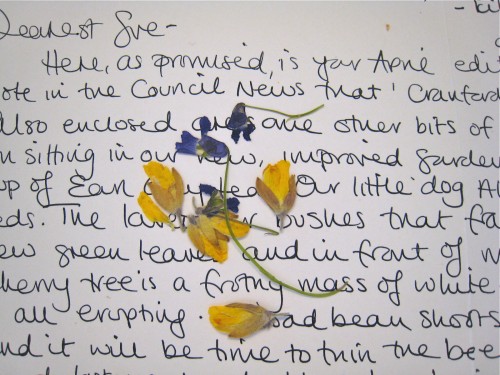 Dearest Sve-
Here, as promised, is your April edit
ote in the Council News that 'Cranford
Also enclosed are some other bits of
n sitting in our new, improved garden
up of Earl Our little dog
eds. The bushes that
ew green leaves and in front of
herry tree is a frothy mass of white
all erupting. road bean shoots
nd it will be time to thin the bee